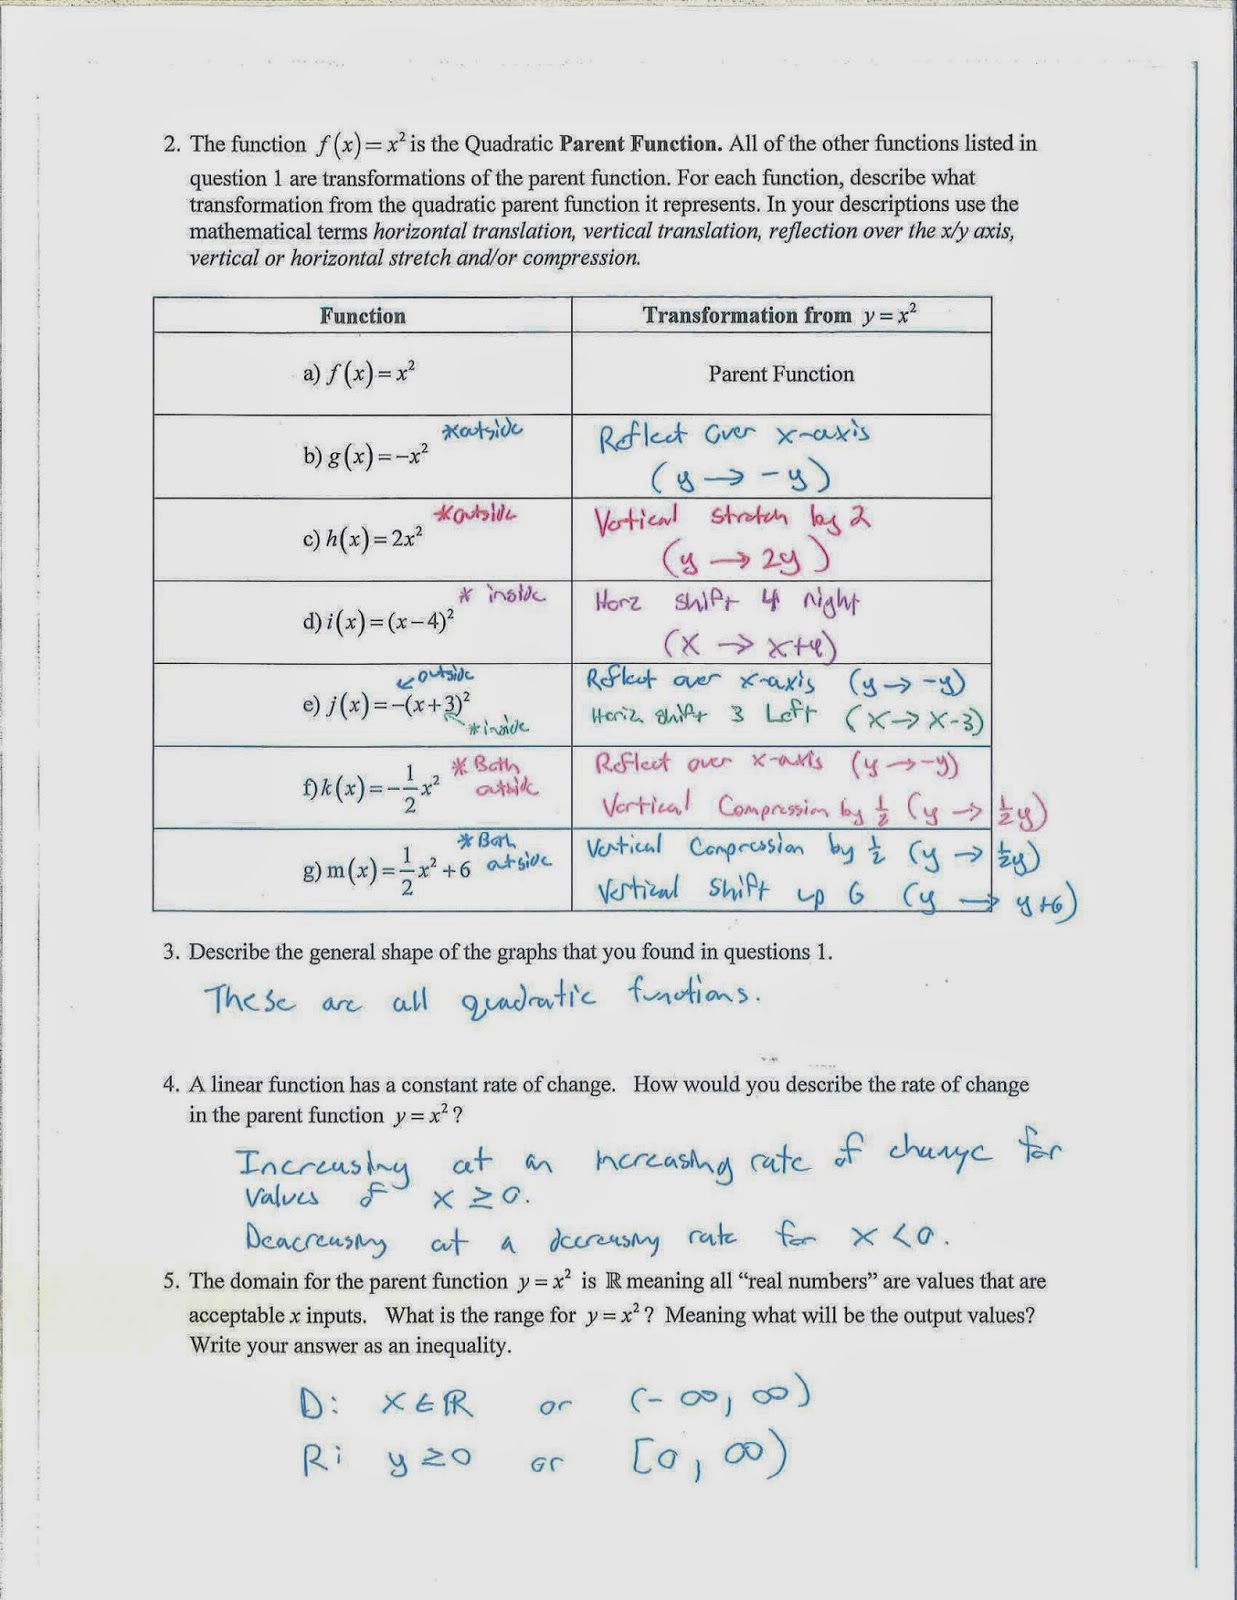 2. The function f(x)=x² is the Quadratic Parent Function. All of the other functions listed in
question 1 are transformations of the parent function. For each function, describe what
transformation from the quadratic parent function it represents. In your descriptions use the
mathematical terms horizontal translation, vertical translation, reflection over the x/y axis,
vertical or horizontal stretch and/or compression.
Function
Transformation from y = x²
a) f(x)=x²
Parent Function
b) g(x)=-x²
*outside
Reflect over x-axis
(y → -y)
c) h(x)=2x²
*outside
Vertical stretch by 2
(y → 2y)
d) i(x)=(x-4)²
* inside
Horz shift 4 right
(x → x+4)
e) j(x)=-(x+3)²
↙outside
*inside
Reflect over x-axis (y→-y)
Horiz shift 3 Left (x→x-3)
f) k(x)=-1/2x²
* Both
outside
Reflect over x-axis (y→-y)
Vertical Compression by 1/2 (y → 1/2y)
g) m(x)=1/2x²+6
* Both
outside
Vertical Compression by 1/2 (y → 1/2y)
Vertical Shift up 6 (y → y+6)
3. Describe the general shape of the graphs that you found in questions 1.
These are all quadratic functions.
4. A linear function has a constant rate of change. How would you describe the rate of change
in the parent function y = x²?
Increasing at an increasing rate of change for
values of x ≥ 0.
Deacreasing at a decreasing rate for x < 0.
5. The domain for the parent function y = x² is ℝ meaning all “real numbers” are values that are
acceptable x inputs. What is the range for y = x²? Meaning what will be the output values?
Write your answer as an inequality.
D: x∈ℝ or (-∞, ∞)
R: y≥0 or [0, ∞)